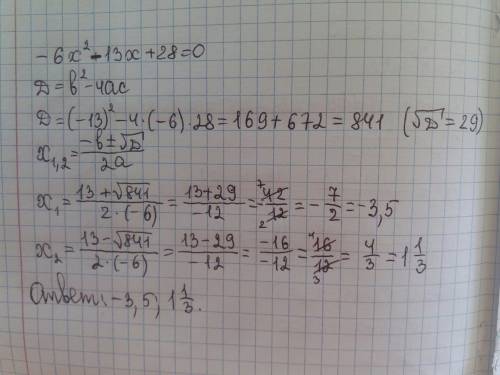 -6x² - 13x + 28 = 0
D = b² - 4ac
D = (-13)² - 4·(-6)·28 = 169 + 672 = 841 (√D = 29)
x₁,₂ = (-b ± √D)/(2a)
x₁ = (13 + √841)/(2·(-6)) = (13 + 29)/(-12) = -42/12 = -7/2 = -3,5
x₂ = (13 - √841)/(2·(-6)) = (13 - 29)/(-12) = (-16)/(-12) = 16/12 = 4/3 = 1 1/3
Ответ: -3,5; 1 1/3.